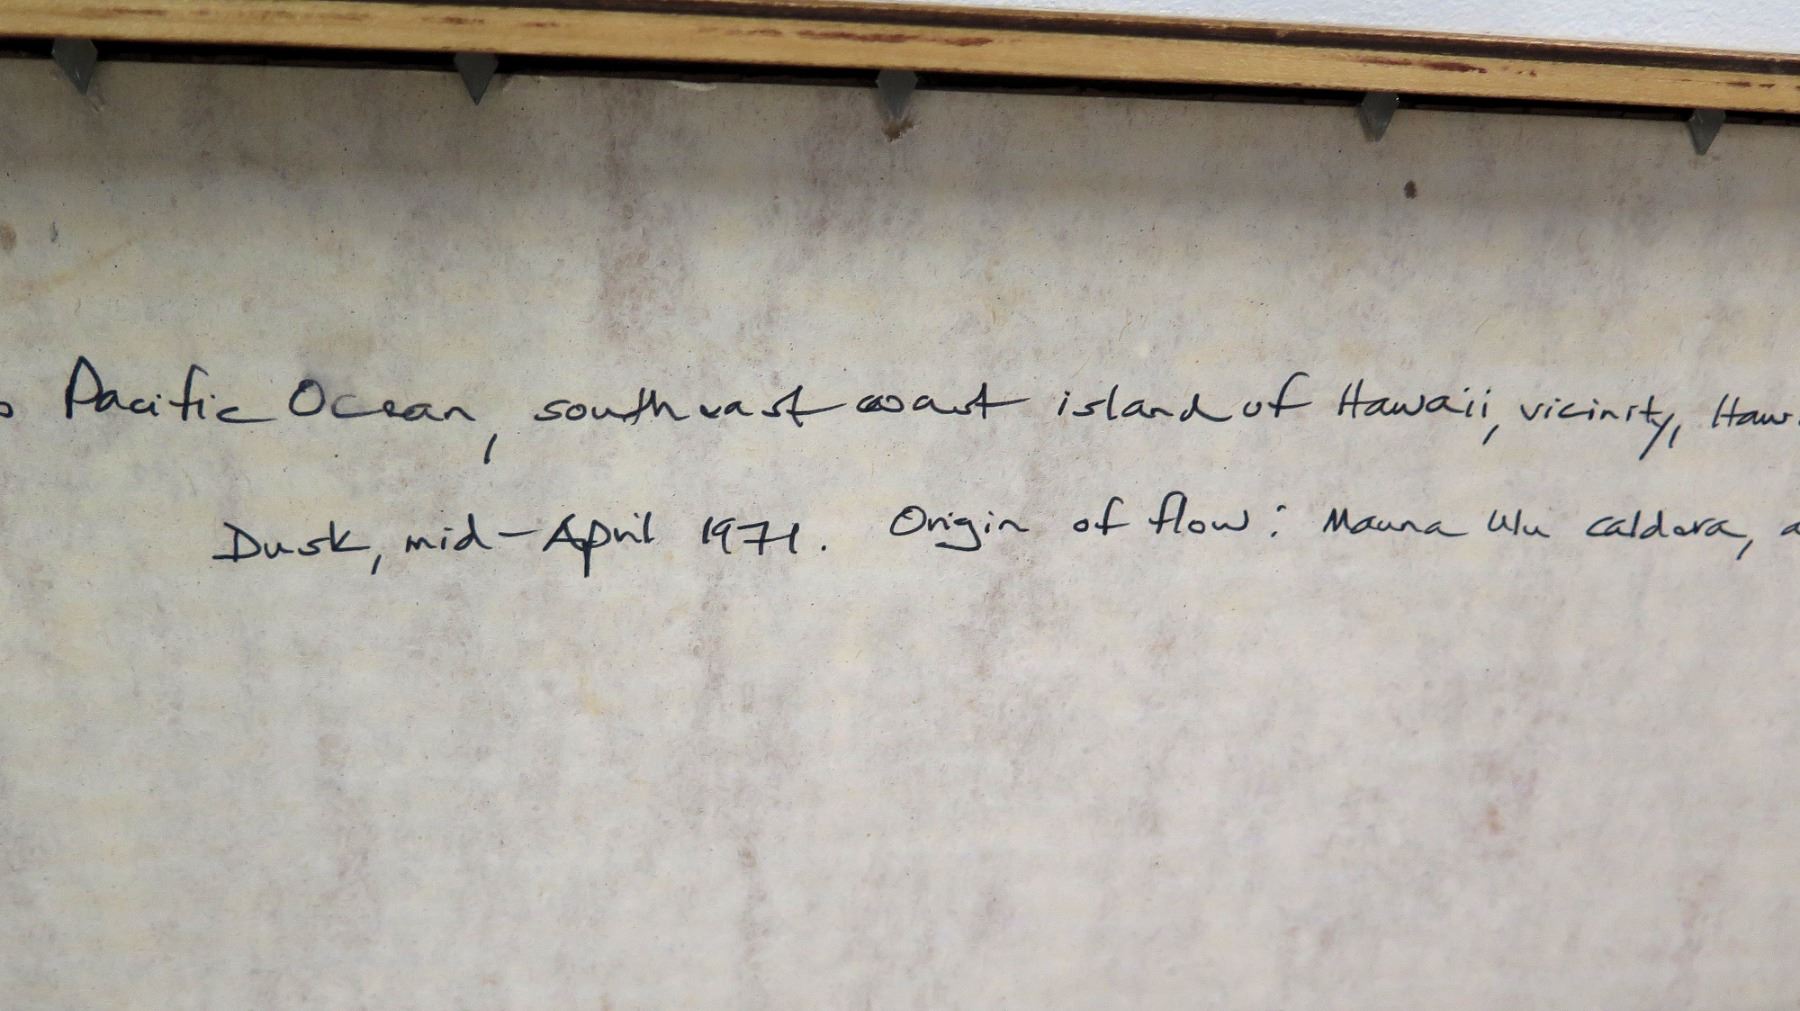 Pacific Ocean, southeast coast island of Hawaii, vicinity, Haw
Dusk, mid-April 1971. Origin of flow: Mauna Ulu caldera, a